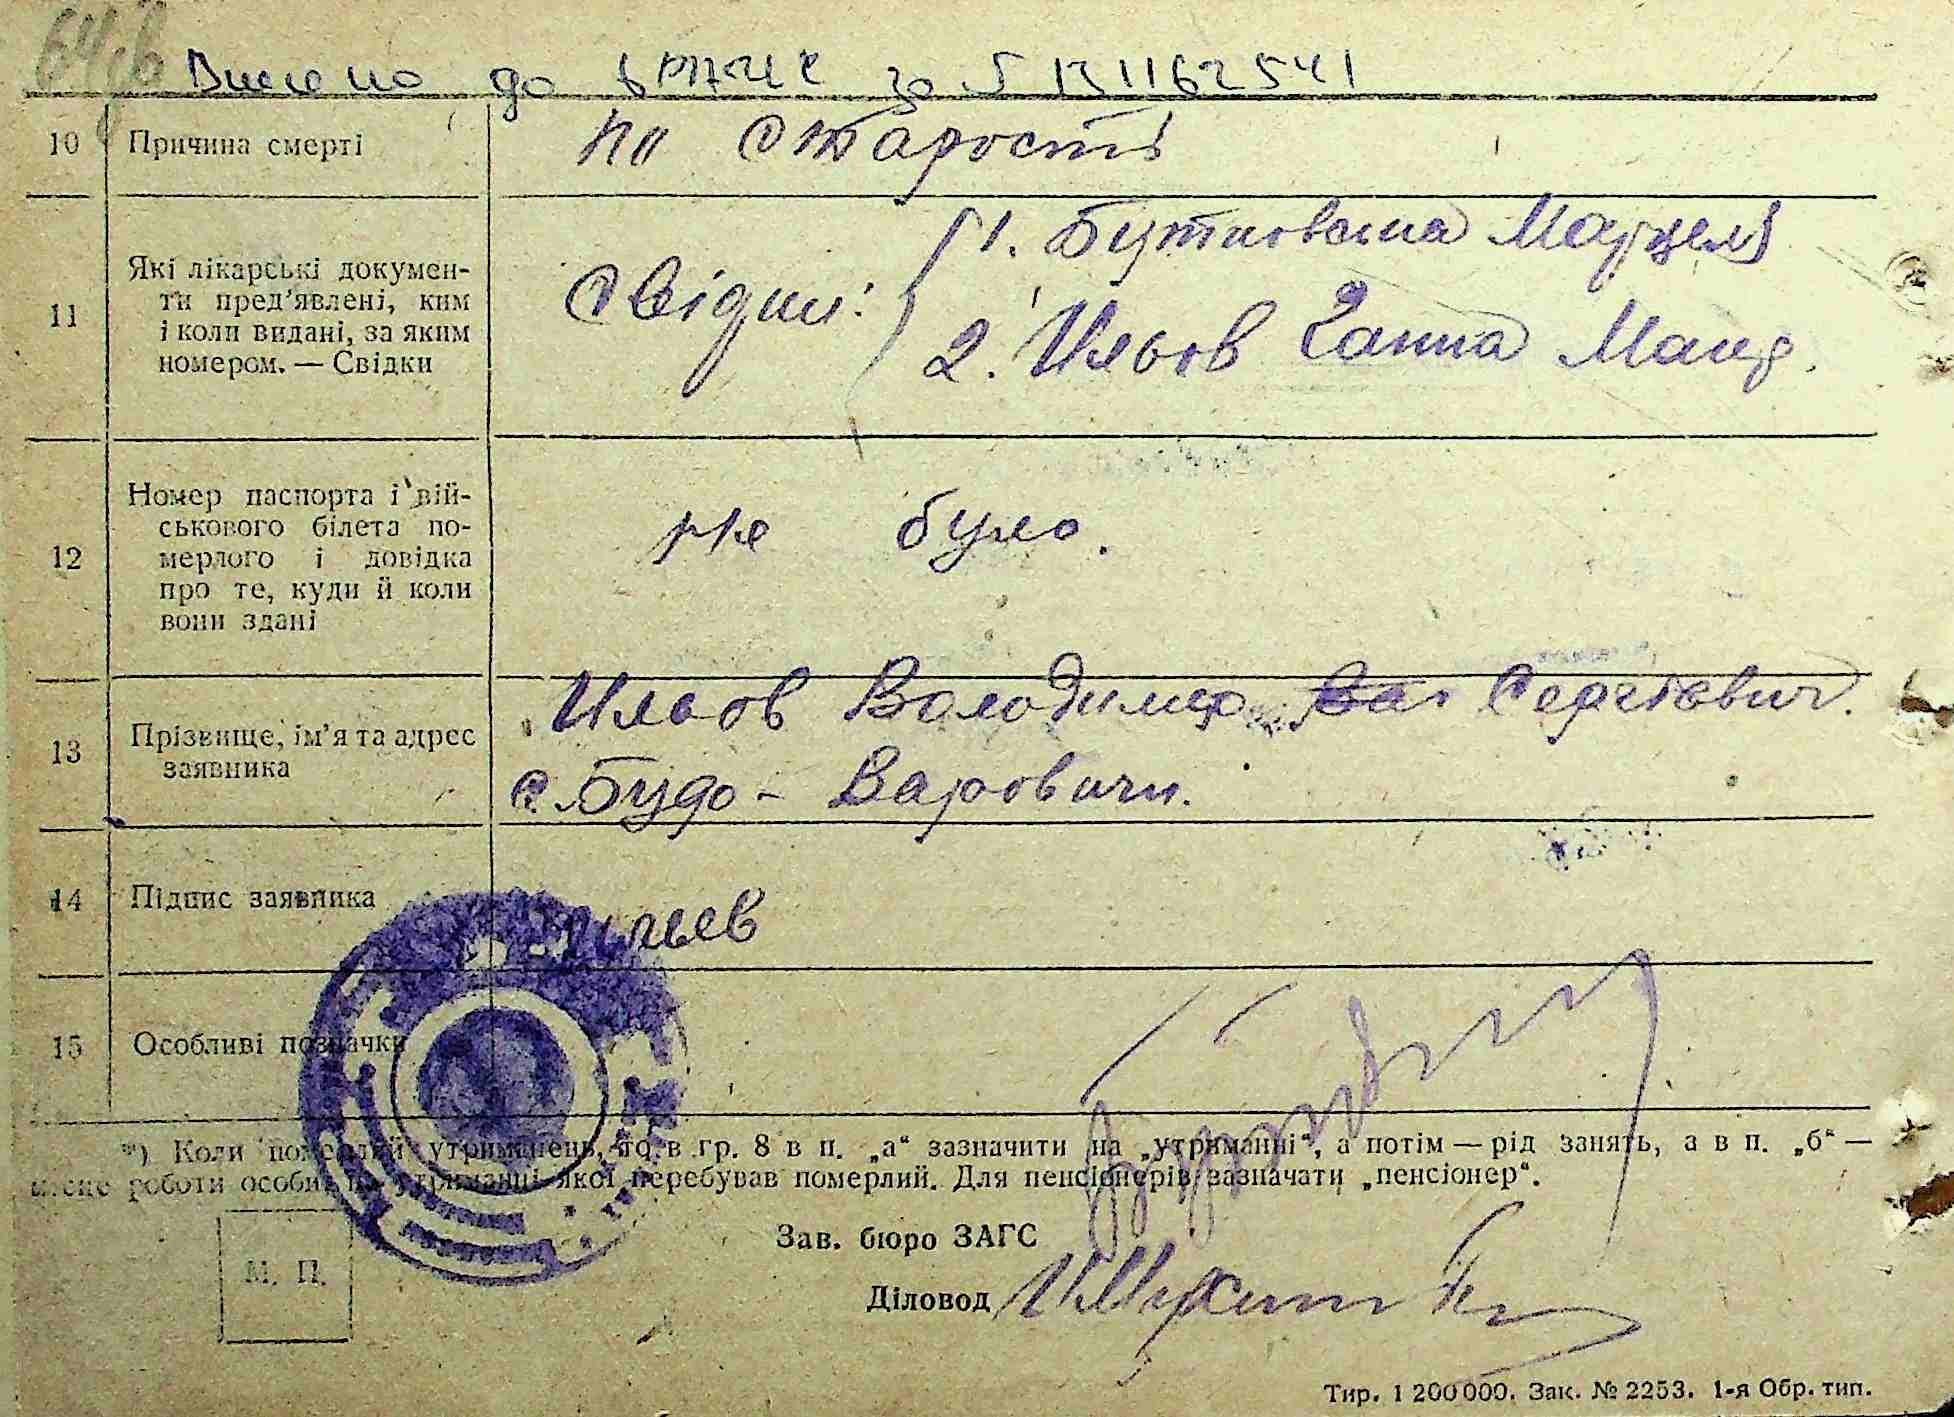 Внесено до ДРАЦС за № 131162541
10 Причина смерті по старості
11 Які лікарські докумен-
ти пред'явлені, ким
і коли видані, за яким
номером. — Свідки
Свідки: 1. Бутковська Марцеля
2. Ильов Ганна Макар.
12 Номер паспорта і вій-
ськового білета по-
мерлого і довідка
про те, куди й коли
вони здані
не було.
13 Прізвище, ім'я та адрес
заявника
Ильов Володимир Сергієвич.
с. Будо - Варовичи.
14 Підпис заявника
15 Особливі позначки
*) Коли померлий утриманець, то в гр. 8 в п. „а“ зазначити на „утриманні“, а потім — рід занять, а в п. „б“ —
місце роботи особи, на утриманні якої перебував померлий. Для пенсіонерів зазначати „пенсіонер“.
М. П.
Зав. бюро ЗАГС
Діловод
Тир. 1 200 000. Зак. № 2253. 1-я Обр. тип.